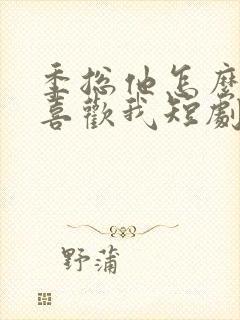 季総他怎麼
喜歡我短劇
野蒲